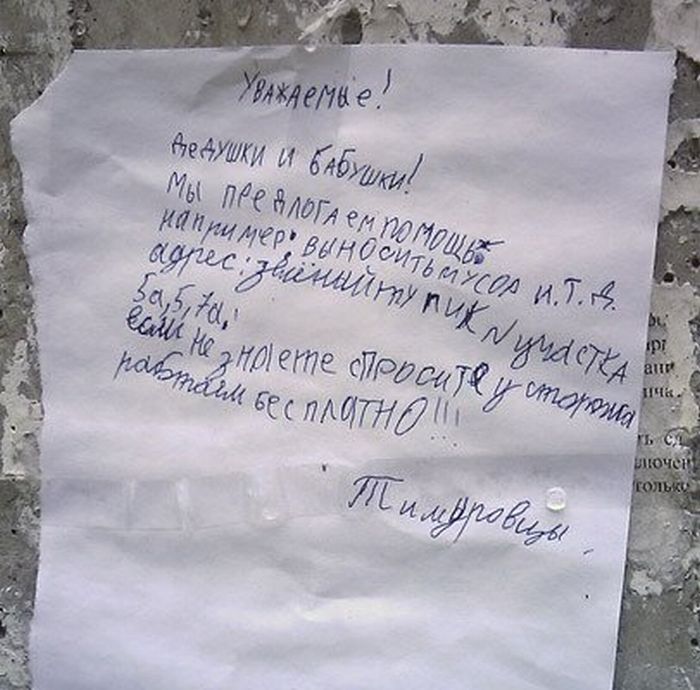 Уважаемые!
дедушки и бабушки!
Мы предлогаем помощь
например: выносить мусор и.т.д.
адрес: зелёный тупик N участка
5а, 5, 7а,
если не знаете спросите у сторожа
работаем бесплатно!!!
Тимуровцы.